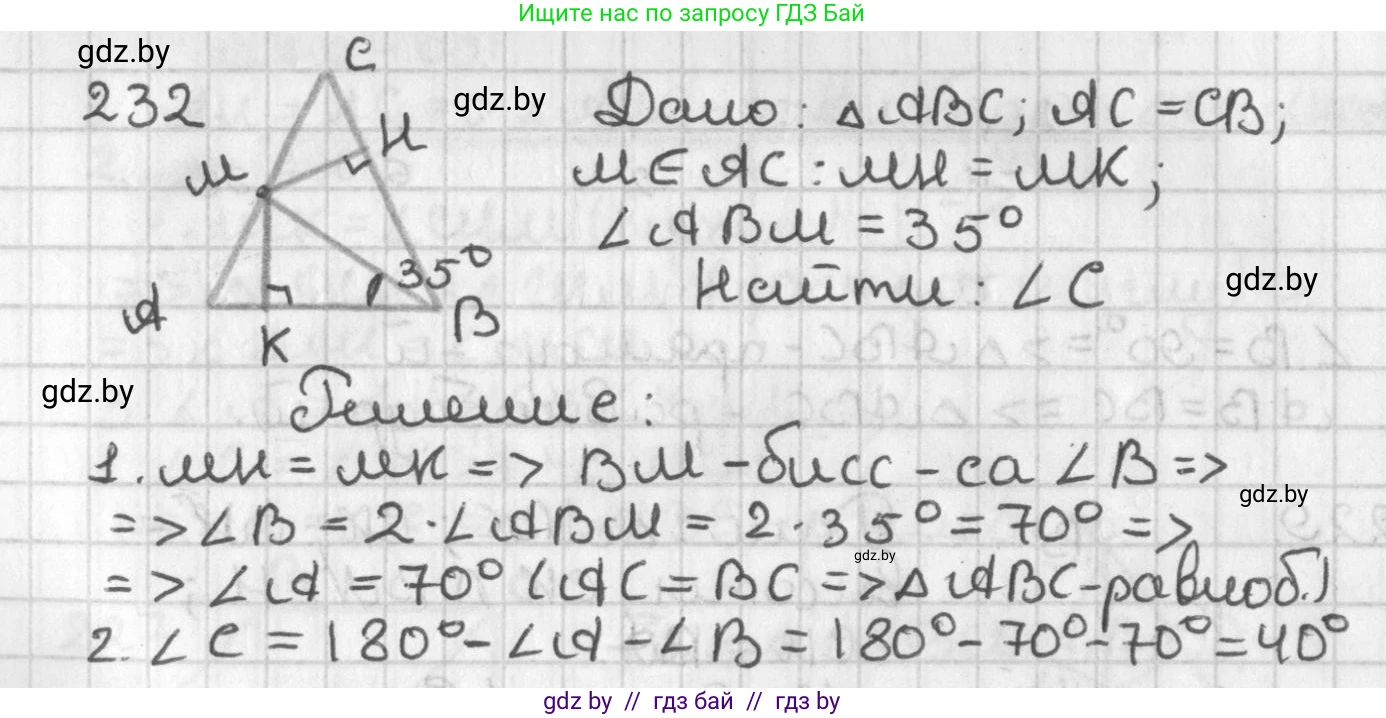 Ищите нас по запросу ГДЗ Бай
gdz.by
232
C
H
M
35°
A
K
B
gdz.by
Дано: △ABC; AC = CB;
M ∈ AC : MH = MK;
∠ABM = 35°
Найти: ∠C
gdz.by
gdz.by
Решение:
1. MH = MK => BM - бисс-са ∠B =>
gdz.by
=> ∠B = 2·∠ABM = 2·35° = 70° =>
gdz.by
=> ∠A = 70° (AC = BC => △ABC - равноб.)
2. ∠C = 180° - ∠A - ∠B = 180° - 70° - 70° = 40°
gdz by // гдз бай // гдз by